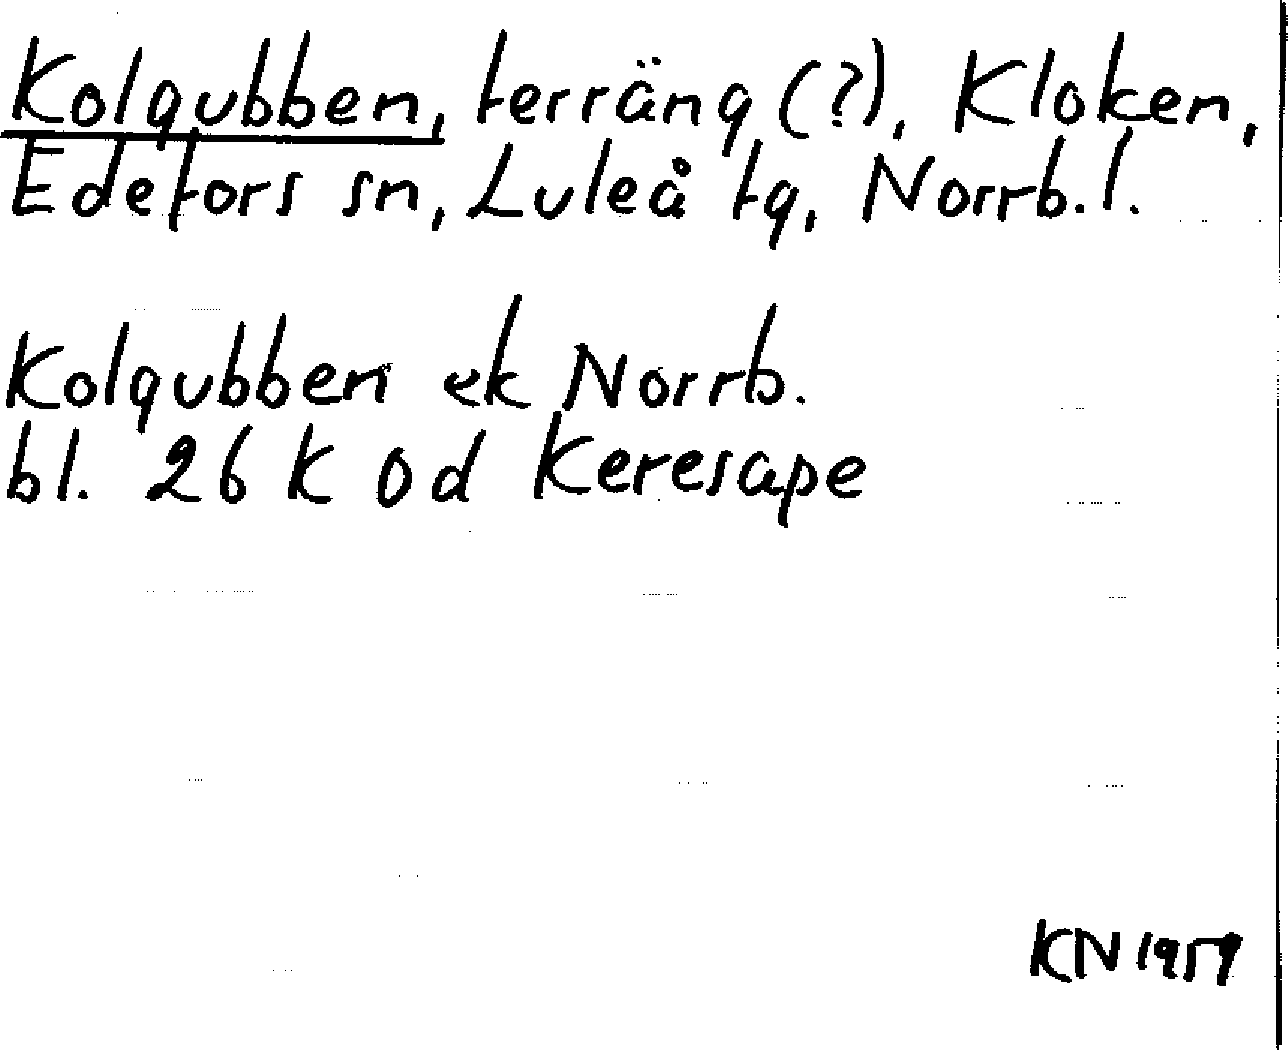 Kolgubben, terräng (?), Kloken,
Edefors sn, Luleå tg, Norrb. l.
Kolgubben ek Norrb.
bl. 26 K 0 d Keresape
KN 1959